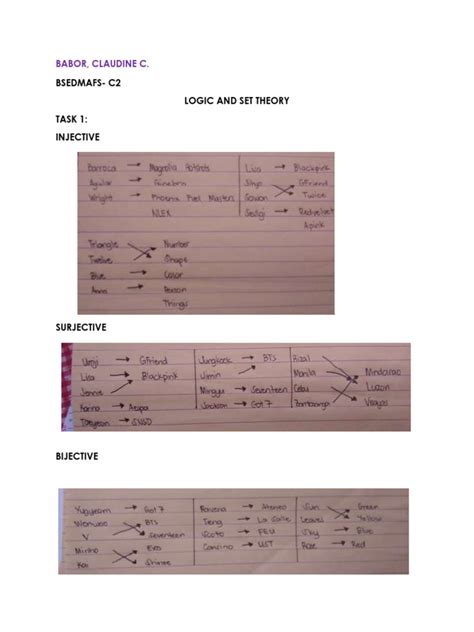 BABOR, CLAUDINE C.
BSEDMAFS- C2
LOGIC AND SET THEORY
TASK 1:
INJECTIVE
Barroca → Magnolia Hotshots
Aguilar → Ginebra
Wright → Phoenix Fuel Masters
NLEX
Lisa → Blackpink
Gfriend
Gowon Twice
Seulgi → Redvelvet
Apink
Triangle Number
Twelve Shape
Blue → Color
Anna → Person
Things
SURJECTIVE
Umji → Gfriend
Lisa → Blackpink
Jennie
Karina → Aespa
Taeyeon → SNSD
Jungkook → BTS
Jimin
Mingyu → Seventeen
Jackson → Got 7
Rizal
Manila Mindanao
Cebu Luzon
Zamboanga Visayas
BIJECTIVE
Yugyeom → Got 7
Wonwoo BTS
V Seventeen
Minho Exo
Kai Shinee
Ravena → Ateneo
Teng → La Salle
Scoto → FEU
→ UST
Sun Green
Leaves Yellow
Sky → Blue
Rose → Red